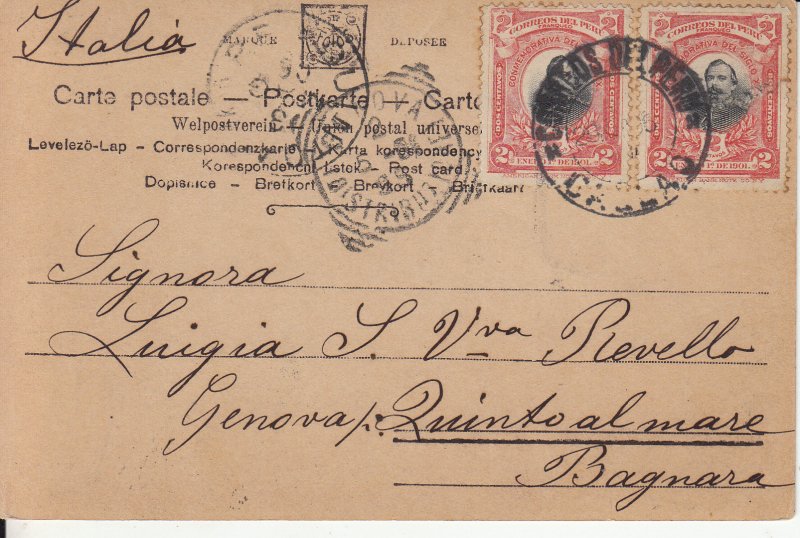 Italia
MARQUE DEPOSER
Carte postale — Postkarte — Carto
Welpostverein — Union postal universe
Levelezö-Lap – Correspondenzkarte – Karta korespondency
Korespondencni Listek – Post card
Dopisnice – Bretkort – Brevkort – Briefkaart
CORREOS DEL PERÚ
FRANQUEO
CONMEMORATIVA DEL SIGLO
DOS CENTAVOS
2 2
ENERO 1º DE 1901.
CORREOS DEL PERÚ
FRANQUEO
DOS CENTAVOS
2 2
1º DE 1901.
CORREOS DEL PERU
CALLAO
GENOVA
DISTRIBUZ
Signora
Luigia S. Vva Revello
Genova p: Quinto al mare
Bagnara